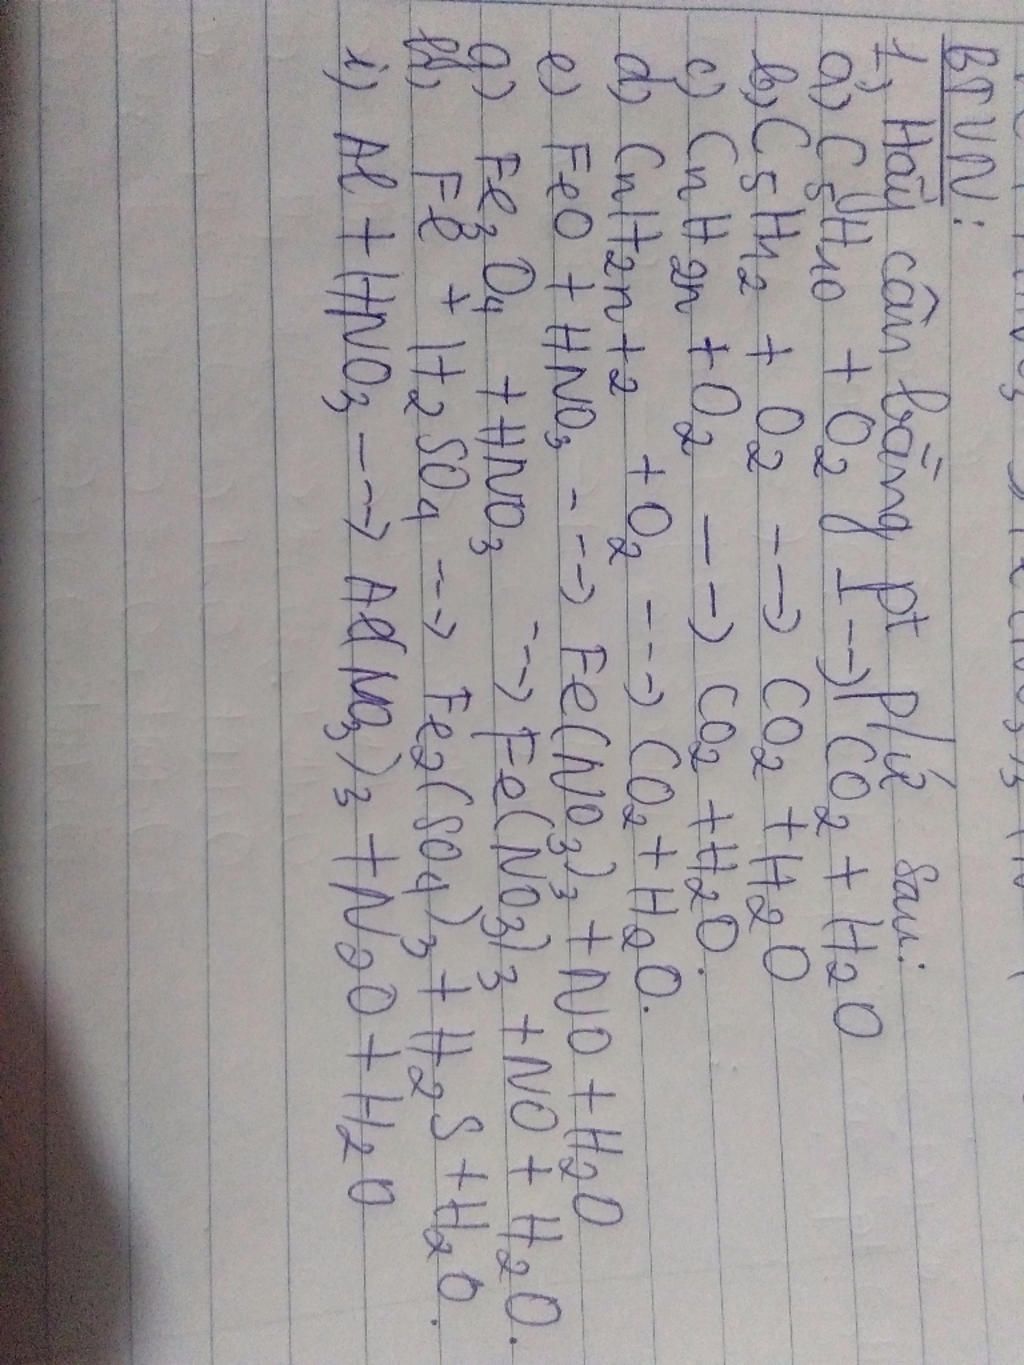 BTVN:
1, Hãy cân bằng pt p/ứ sau:
a, C5H10 + O2 --→ CO2 + H2O
b, C5H12 + O2 --→ CO2 + H2O
c, CnH2n + O2 --→ CO2 + H2O.
d, CnH2n+2 + O2 --→ CO2 + H2O.
e) FeO + HNO3 --→ Fe(NO3)3 + NO + H2O
g) Fe3O4 + HNO3 --→ Fe(NO3)3 + NO + H2O.
h, Fe + H2SO4 --→ Fe2(SO4)3 + H2S + H2O.
i) Al + HNO3 --→ Al(NO3)3 + N2O + H2O